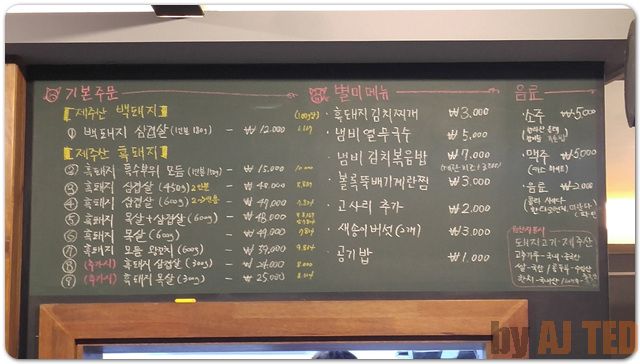 기본주문
[제주산 백돼지]
(100g당)
① 백돼지 삼겹살 (1인분 180g) - ₩12,000
[제주산 흑돼지]
② 흑돼지 특수부위 모듬 (1인분 150g) - ₩15,000 10,000
③ 흑돼지 삼겹살 (450g) 2인분 - ₩40,000
④ 흑돼지 삼겹살 (600g) - ₩49,000
⑤ 흑돼지 목살+삼겹살 (600g) - ₩48,000
⑥ 흑돼지 목살 (600g) - ₩47,000
⑦ 흑돼지 모듬 (600g) - ₩59,000
⑧ (추가시) 흑돼지 삼겹살 (300g) - ₩24,000 8,000
⑨ (추가시) 흑돼지 목살 (300g) - ₩25,000
별미메뉴
· 흑돼지 김치찌개 ₩3,000
· 냄비 열무국수 ₩5,000
· 냄비 김치볶음밥 ₩7,000
· 볼록뚝배기계란찜 ₩3,000
· 고사리 추가 ₩2,000
· 새송이버섯 (2개) ₩3,000
· 공기밥 ₩1,000
음료
· 소주 ₩5000
· 맥주 ₩5000
(카스 하이트)
· 음료 ₩2,000
원산지표시
돼지고기-제주산
고추가루-국내,중국산
쌀-국산
by AJ TED